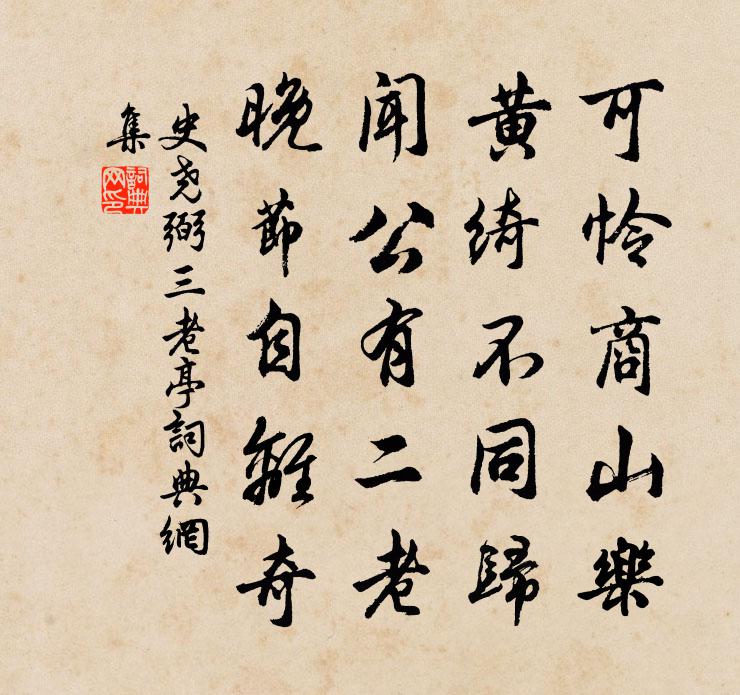 可怜商山樂
黄绮不同歸
闻公有二老
晚節自離奇
史尧弼三老亭詞典網
集
詞典
网印